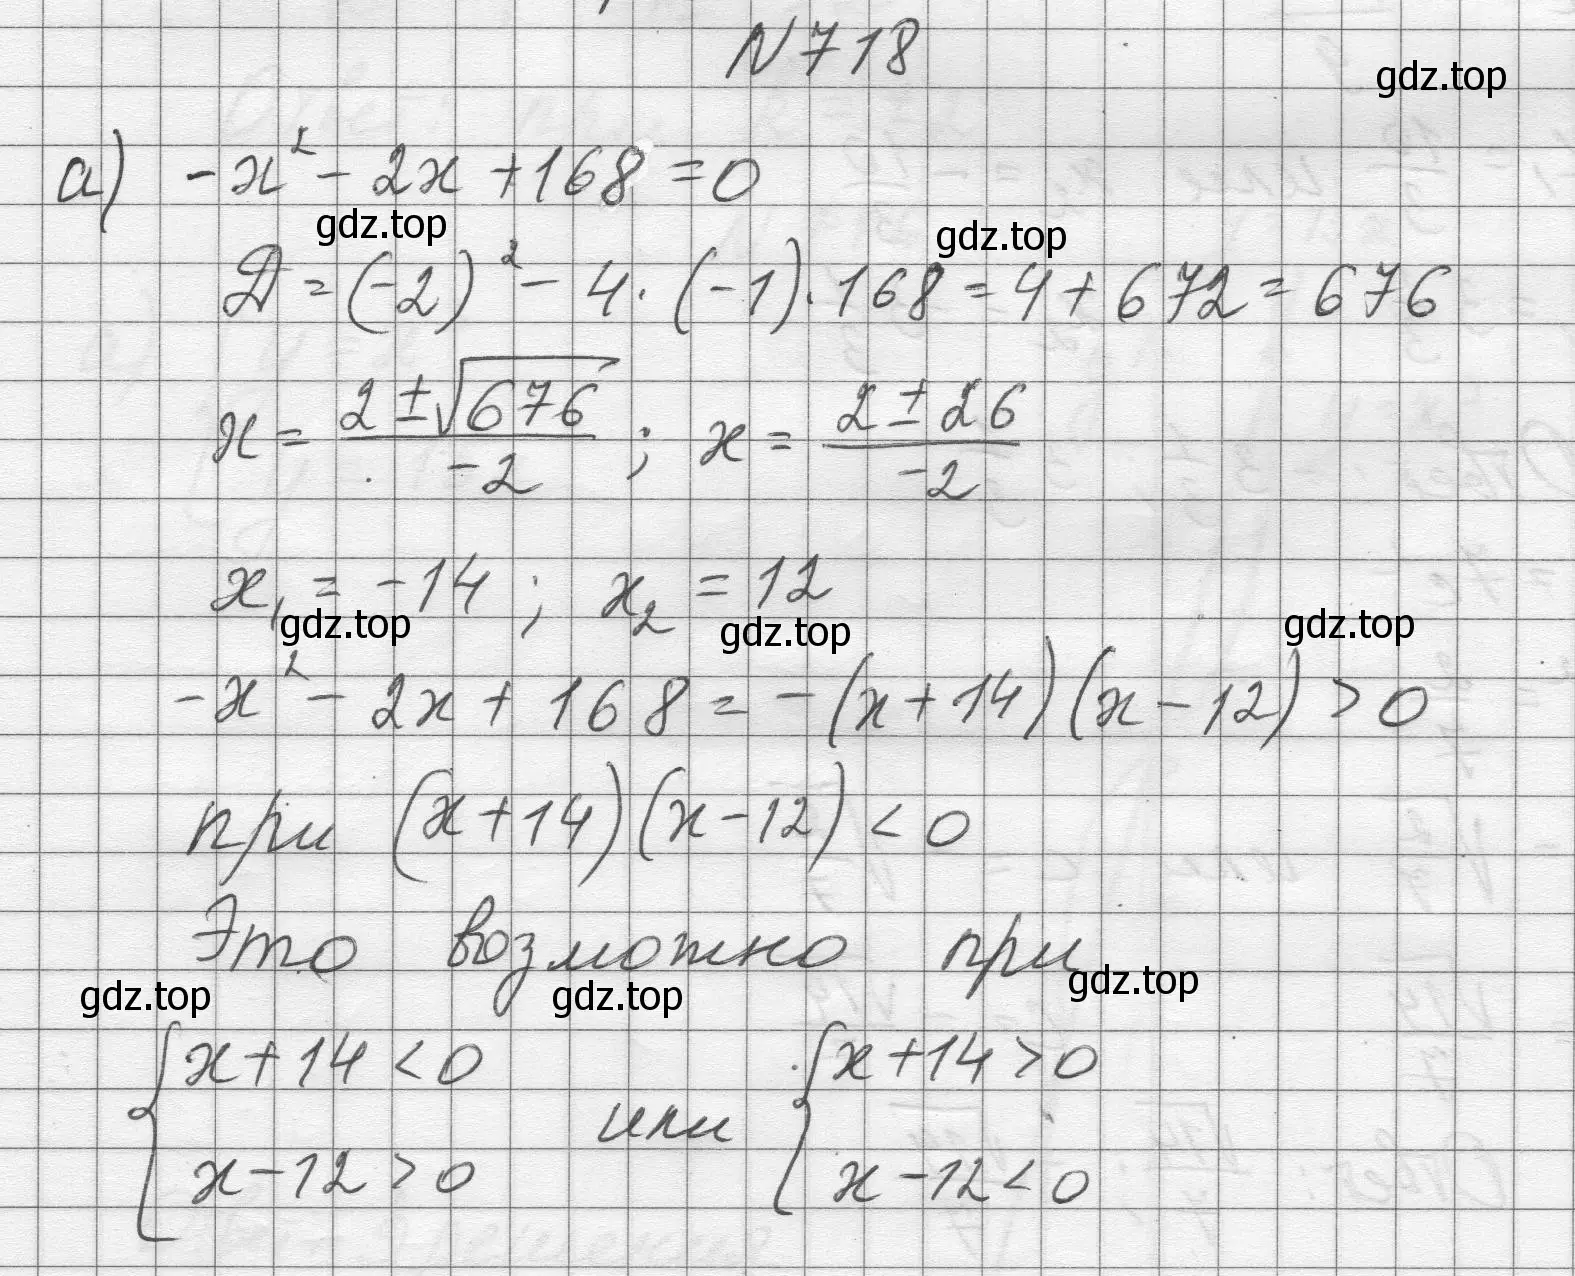 N 718
gdz.top
а) -x² - 2x + 168 = 0
gdz.top gdz.top
Д = (-2)² - 4 · (-1) · 168 = 4 + 672 = 676
x = (2 ± √676) / -2 ; x = (2 ± 26) / -2
x₁ = -14 ; x₂ = 12
gdz.top gdz.top gdz.top
-x² - 2x + 168 = -(x + 14)(x - 12) > 0
при (x + 14)(x - 12) < 0
Это возможно при
gdz.top gdz.top gdz.top
{ x + 14 < 0 или { x + 14 > 0
x - 12 > 0 x - 12 < 0